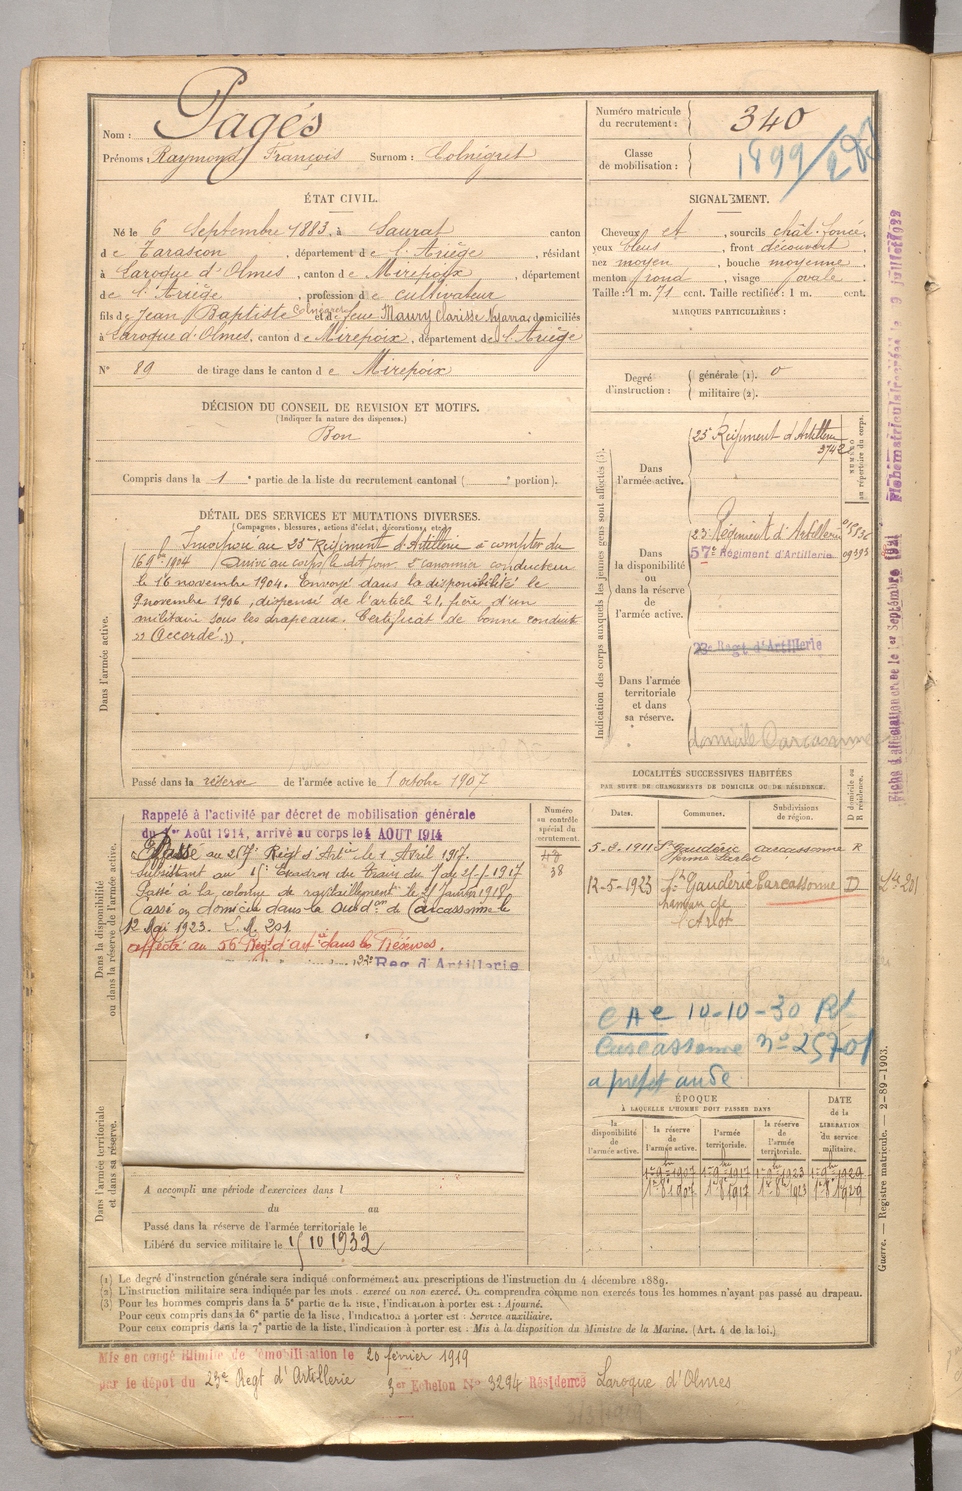 Nom : Pagés
Prénoms : Raymond François Surnom : Colnégret
ÉTAT CIVIL.
Né le 6 Septembre 1883, à Saurat canton
de Tarascon, département de l'Ariège, résidant
à Laroque d'Olmes, canton de Mirepoix, département
de l'Ariège, profession de cultivateur
fils de Jean Baptiste et de feue Maury Clarisse domiciliés
à Laroque d'Olmes, canton de Mirepoix, département de l'Ariège
N° 89 de tirage dans le canton de Mirepoix
DÉCISION DU CONSEIL DE REVISION ET MOTIFS.
(Indiquer la nature des dispenses.)
Bon
Compris dans la 1e partie de la liste du recrutement cantonal ( e portion).
DÉTAIL DES SERVICES ET MUTATIONS DIVERSES.
(Campagnes, blessures, actions d'éclat, décorations, etc.)
Dans l'armée active.
Incorporé au 23e Régiment d'Artillerie à compter du
16 9bre 1904 Arrivé au corps le dit jour. 2e canonnier conducteur
le 16 novembre 1904. Envoyé dans la disponibilité le
9 novembre 1906, dispensé de l'article 21, frère d'un
militaire sous les drapeaux. Certificat de bonne conduite
" Accordé ".
Passé dans la réserve de l'armée active le 1 octobre 1907
Dans la disponibilité
ou dans la réserve de l'armée active.
Rappelé à l'activité par décret de mobilisation générale
du 1er Août 1914, arrivé au corps le 4 AOUT 1914
Passé au Régt d'Artie le 1 Avril 1917.
Subsistant au 15e Escadron du Train du
Passé à la colonne de ravitaillement le 21 Janvier 1918
Classé en domicile dans la Subdon de Carcassonne le
12 Mai 1923. L. M. 201.
affecté au 56 Rég. d'art. dans les Réserves.
Reg d'Artillerie
Numéro
au contrôle
spécial du
recrutement.
48
38
Dans l'armée territoriale
et dans sa réserve.
A accompli une période d'exercices dans l
du au
Passé dans la réserve de l'armée territoriale le
Libéré du service militaire le 15 10 1932
Numéro matricule du recrutement : 340
Classe de mobilisation : 1899/203
SIGNALEMENT.
Cheveux et, sourcils chât. foncé.
yeux bleus, front découvert
nez moyen, bouche moyenne
menton rond, visage ovale
Taille : 1 m. 71 cent. Taille rectifiée : 1 m. cent.
MARQUES PARTICULIÈRES :
Degré d'instruction : générale (1). 0
militaire (2).
Indication des corps auxquels les jeunes gens sont affectés (3).
NUMÉRO
au répertoire du corps.
Dans
l'armée active.
23e Régiment d'Artillerie
3742
Dans
la disponibilité
ou
dans la réserve
de
l'armée active.
23e Régiment d'Artillerie
57e Régiment d'Artillerie
Dans l'armée
territoriale
et dans
sa réserve.
23e Regt d'Artillerie
domicile Carcassonne
LOCALITÉS SUCCESSIVES HABITÉES
PAR SUITE DE CHANGEMENTS DE DOMICILE OU DE RÉSIDENCE.
Dates. Communes. Subdivisions de région. D domicile ou R résidence.
1911 Ste Gauderic Carcassonne R
12-5-1923 Ste Gauderic Carcassonne D
hameau de
l'Arlot
C A C 10-10-30
Carcassonne
a préfet aude
ÉPOQUE
À LAQUELLE L'HOMME DOIT PASSER DANS
la disponibilité de l'armée active.
la réserve de l'armée active.
l'armée territoriale.
la réserve de l'armée territoriale.
DATE de la LIBÉRATION du service militaire.
Guerre. — Registre matricule. — 2-89-1903.
(1) Le degré d'instruction générale sera indiqué conformément aux prescriptions de l'instruction du 4 décembre 1889.
(2) L'instruction militaire sera indiquée par les mots : exercé ou non exercé. On comprendra comme non exercés tous les hommes n'ayant pas passé au drapeau.
(3) Pour les hommes compris dans la 5e partie de la liste, l'indication à porter est : Ajourné.
Pour ceux compris dans la 6e partie de la liste, l'indication à porter est : Service auxiliaire.
Pour ceux compris dans la 7e partie de la liste, l'indication à porter est : Mis à la disposition du Ministre de la Marine. (Art. 4 de la loi.)
Mis en congé illimité de démobilisation le 20 février 1919
par le dépôt du 23e Regt d'Artillerie 3er Echelon N° 3294 Résidence Laroque d'Olmes